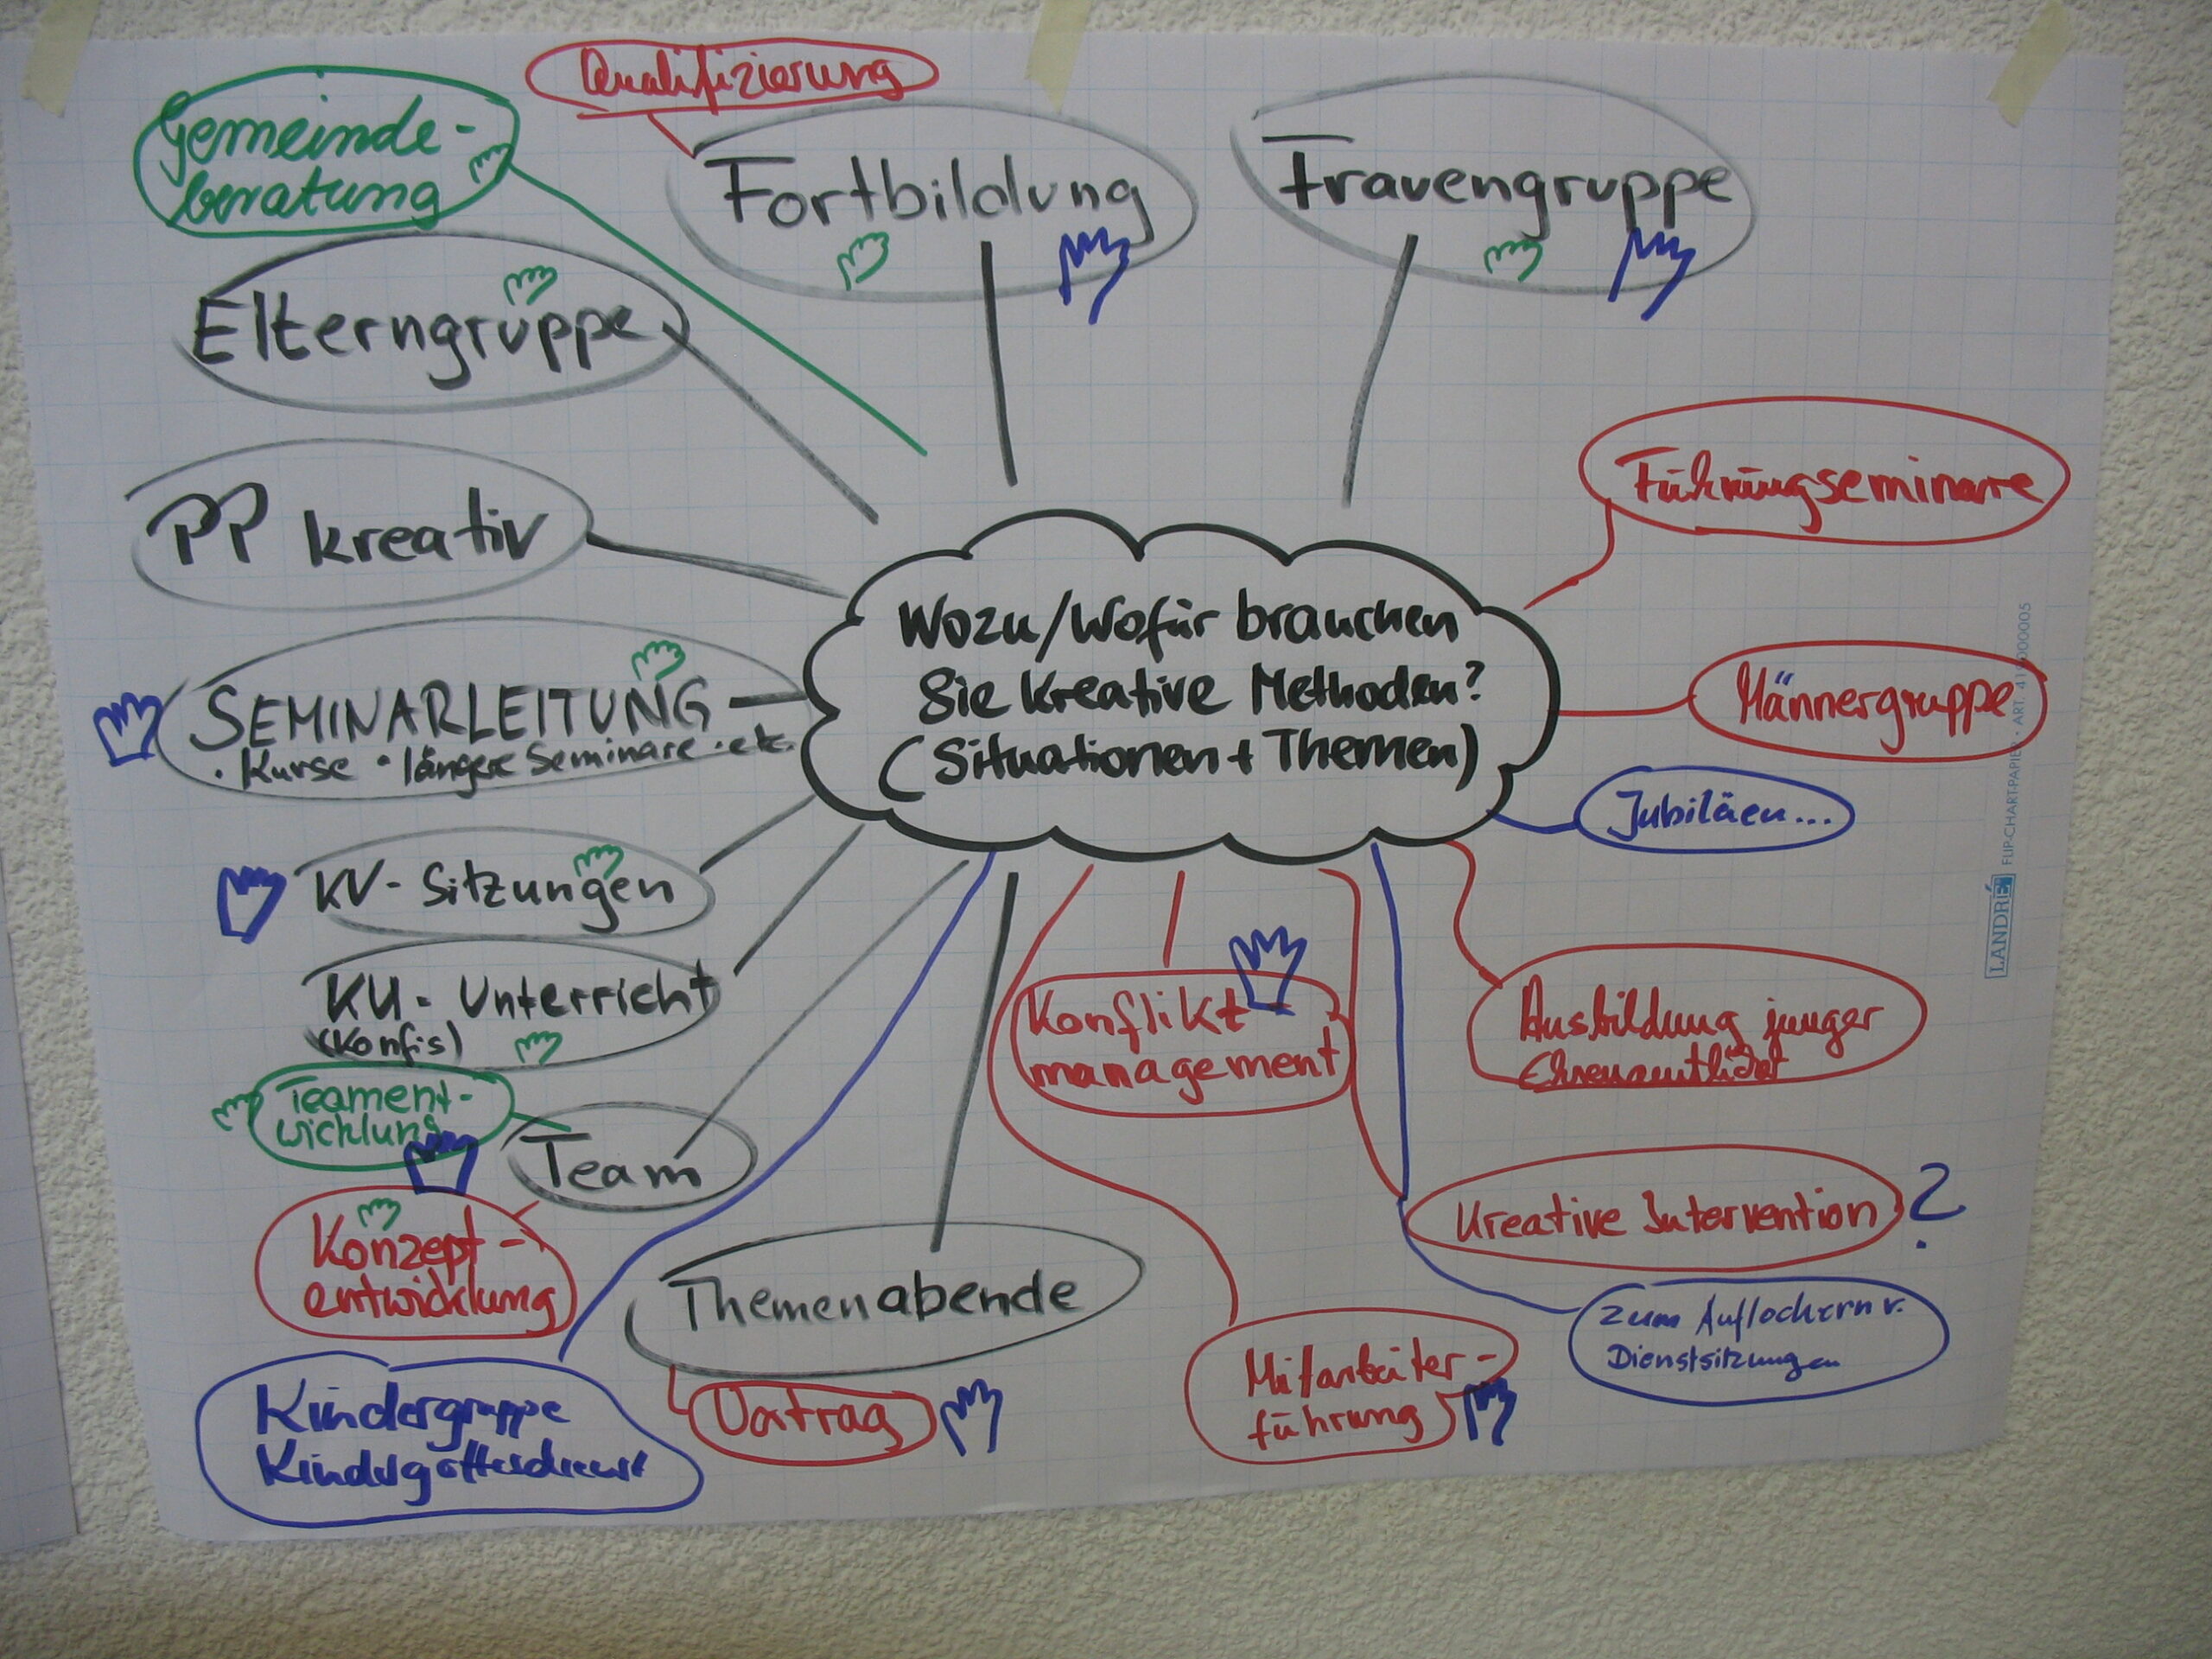 Qualifizierung
Gemeinde-
beratung
Fortbildung
Frauengruppe
Elterngruppe
PP kreativ
Führungseminare
Wozu/Wofür brauchen
Sie kreative Methoden?
(Situationen + Themen)
SEMINARLEITUNG
• Kurse • längere Seminare • etc.
Männergruppe
Jubiläen...
KV - Sitzungen
KU - Unterricht
(Konfis)
Konflikt
management
Ausbildung junger
Ehrenamtlicher
Teament-
wicklung
Team
Konzept-
entwicklung
Kreative Intervention ?
Themenabende
zum Auflockern v.
Dienstsitzungen
Mitarbeiter-
führung
Kindergruppe
Kindergottesdienst
Vortrag
LANDRÉ FLIP-CHART-PAPIER • ART. 41 00005